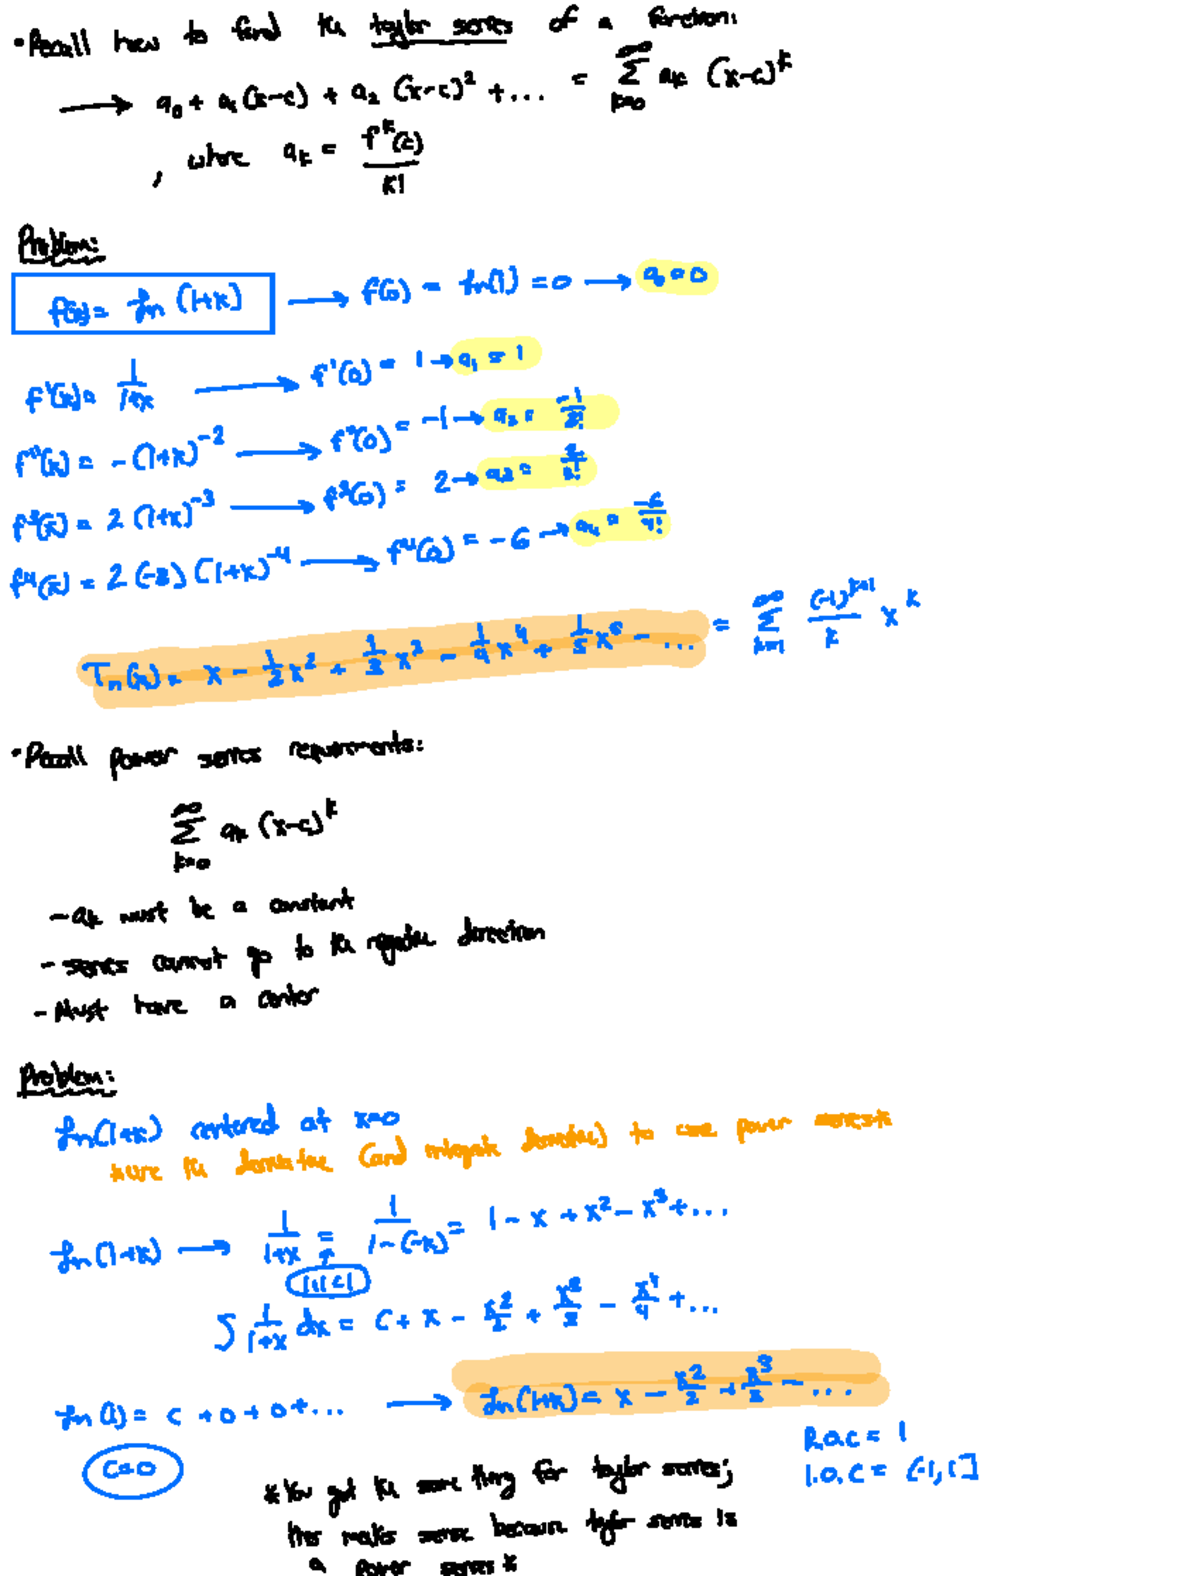 • Recall how to find the taylor series of a function:
→ a₀ + a₁(x-c) + a₂(x-c)² + ... = ∞ Σ k=0 aₖ (x-c)ᵏ
, where aₖ = fᵏ(c) / k!
Problem:
f(x) = ln (1+x) → f(0) = ln(1) = 0 → a₀ = 0
f'(x) = 1/(1+x) → f'(0) = 1 → a₁ = 1
f''(x) = -(1+x)⁻² → f''(0) = -1 → a₂ = -1/2!
f³(x) = 2(1+x)⁻³ → f³(0) = 2 → a₃ = 2/3!
f⁴(x) = 2(-3)(1+x)⁻⁴ → f⁴(0) = -6 → a₄ = -6/4!
Tₙ(x) = x - 1/2 x² + 1/3 x³ - 1/4 x⁴ + 1/5 x⁵ - ... = ∞ Σ k=1 (-1)ᵏ⁺¹/k xᵏ
• Recall power series requirements:
∞ Σ k=0 aₖ (x-c)ᵏ
- aₖ must be a constant
- series cannot go to the negative direction
- Must have a center
Problem:
ln(1+x) centered at x=0
*use the derivative (and integrate derivative) to use power series*
ln(1+x) → 1/(1+x) = 1/(1-(-x)) = 1 - x + x² - x³ + ...
|r|<1
∫ 1/(1+x) dx = C + x - x²/2 + x³/3 - x⁴/4 + ...
ln(1) = C + 0 + 0 + ... → ln(1+x) = x - x²/2 + x³/3 - ...
C=0
R.O.C = 1
I.O.C = (-1,1]
*You get the same thing for taylor series;
this makes sense because taylor series is
a power series*